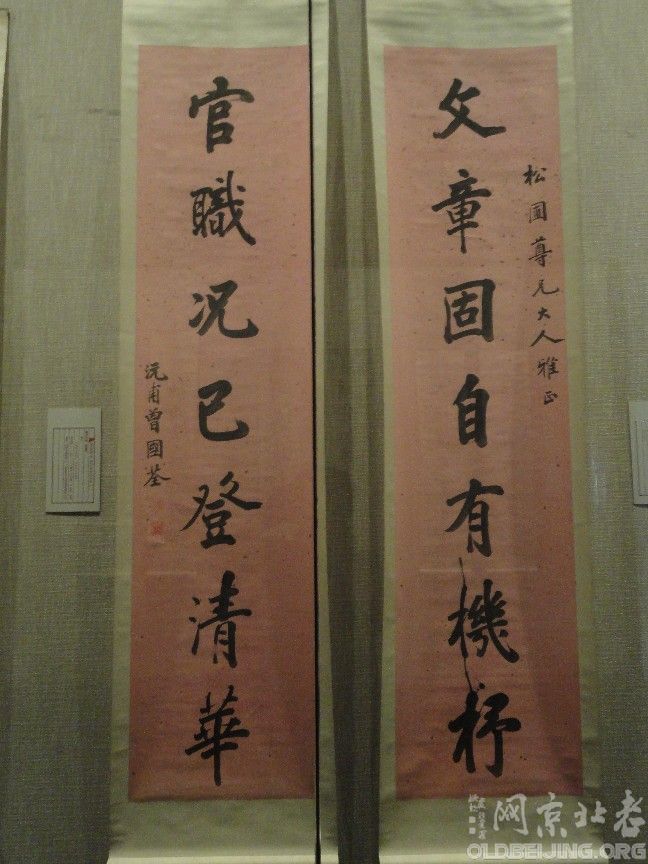 松圃尊兄大人雅正
文章固自有機杼
官職况已登清華
沅甫曾國荃
老北京网
OLDBEIJING.ORG